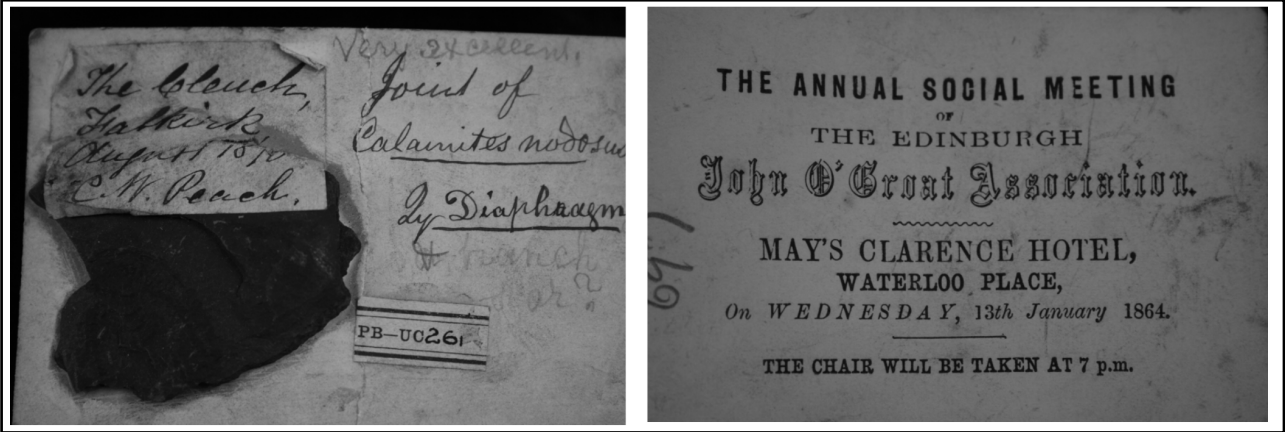 Very excellent.
The Cleuch,
Falkirk
August 1870
C. W. Peach.
Joint of
Calamites nodosus
Qy Diaphragm
& branch
or?
PB-UC261
THE ANNUAL SOCIAL MEETING
OF
THE EDINBURGH
John O'Groat Association.
MAY'S CLARENCE HOTEL,
WATERLOO PLACE,
On WEDNESDAY, 13th January 1864.
THE CHAIR WILL BE TAKEN AT 7 p.m.